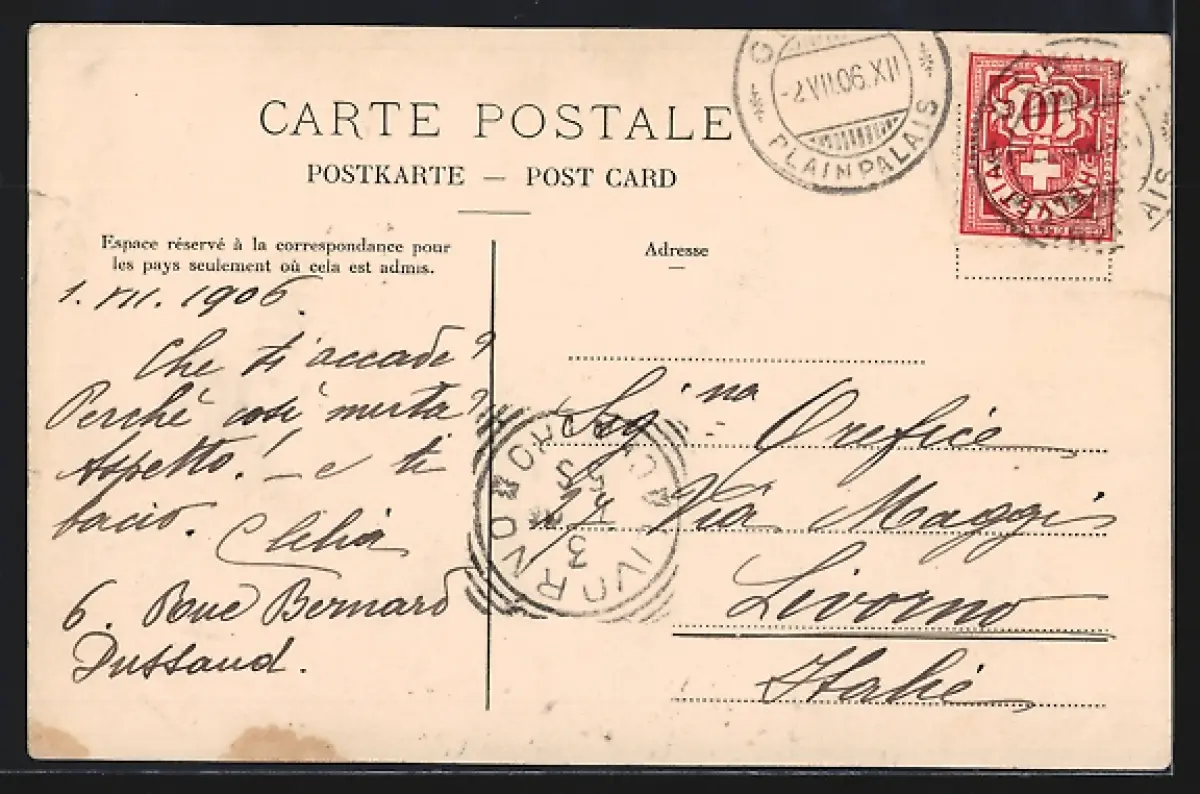 CARTE POSTALE
POSTKARTE — POST CARD
Espace réservé à la correspondance pour
les pays seulement où cela est admis.
Adresse
1. VII. 1906.
Che ti accade?
Perché così muta?
Aspetto! — e ti
bacio.
Clelia
6. Rue Bernard
Dussaud.
Sig.na Orefice
27 Via Maggi
Livorno
Italie
-2 VII 06. XII
PLAINPALAIS
10
HELVETIA
FRANCO
LIVORNO
3
AIS